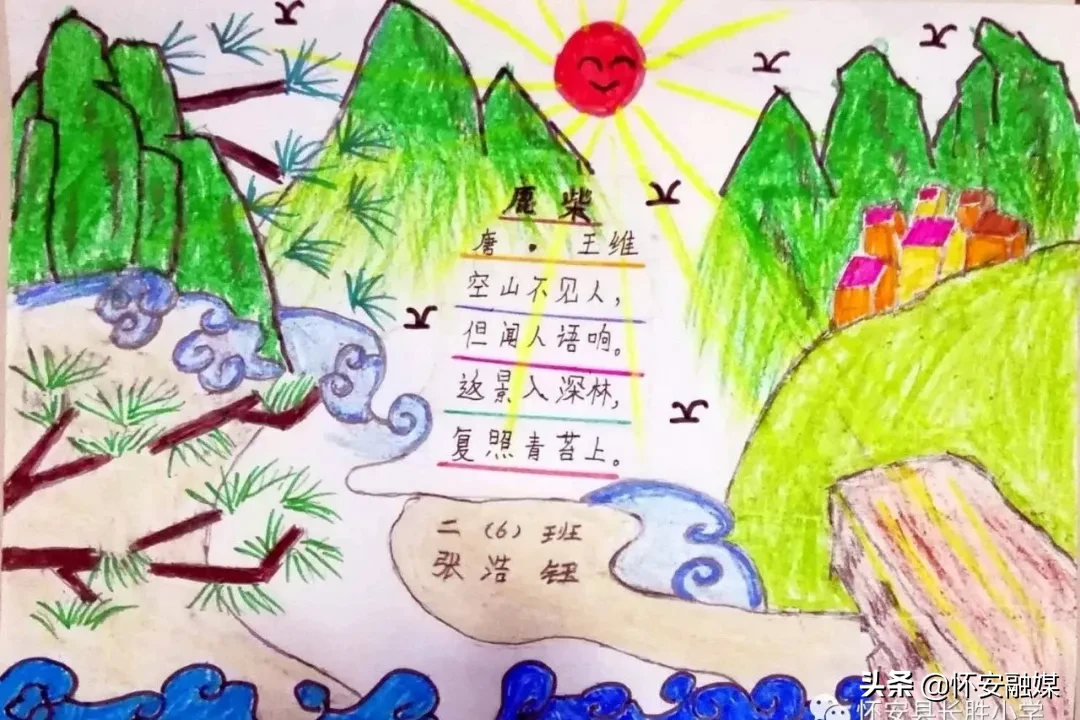 鹿柴
唐·王维
空山不见人，
但闻人语响。
返景入深林，
复照青苔上。
二（6）班
张浩钰
头条 @怀安融媒
怀安县长胜小学